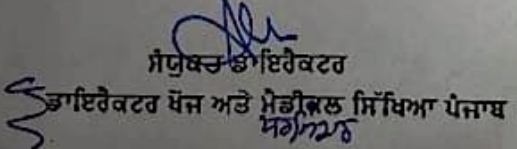 ਸੰਯੁਕਤ ਡਾਇਰੈਕਟਰ
ਡਾਇਰੈਕਟਰ ਖੋਜ ਅਤੇ ਮੈਡੀਕਲ ਸਿੱਖਿਆ ਪੰਜਾਬ